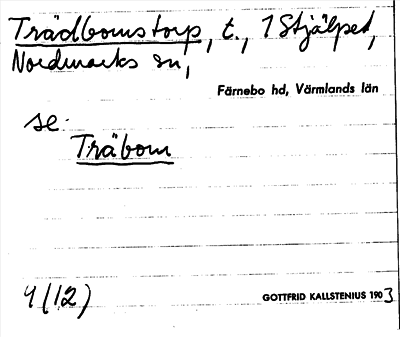 Trädbomstorp, t., 1 Stjälpet,
Nordmarks sn,
Färnebo hd, Värmlands län
se
Träbom
4(12)
GOTTFRID KALLSTENIUS 1903